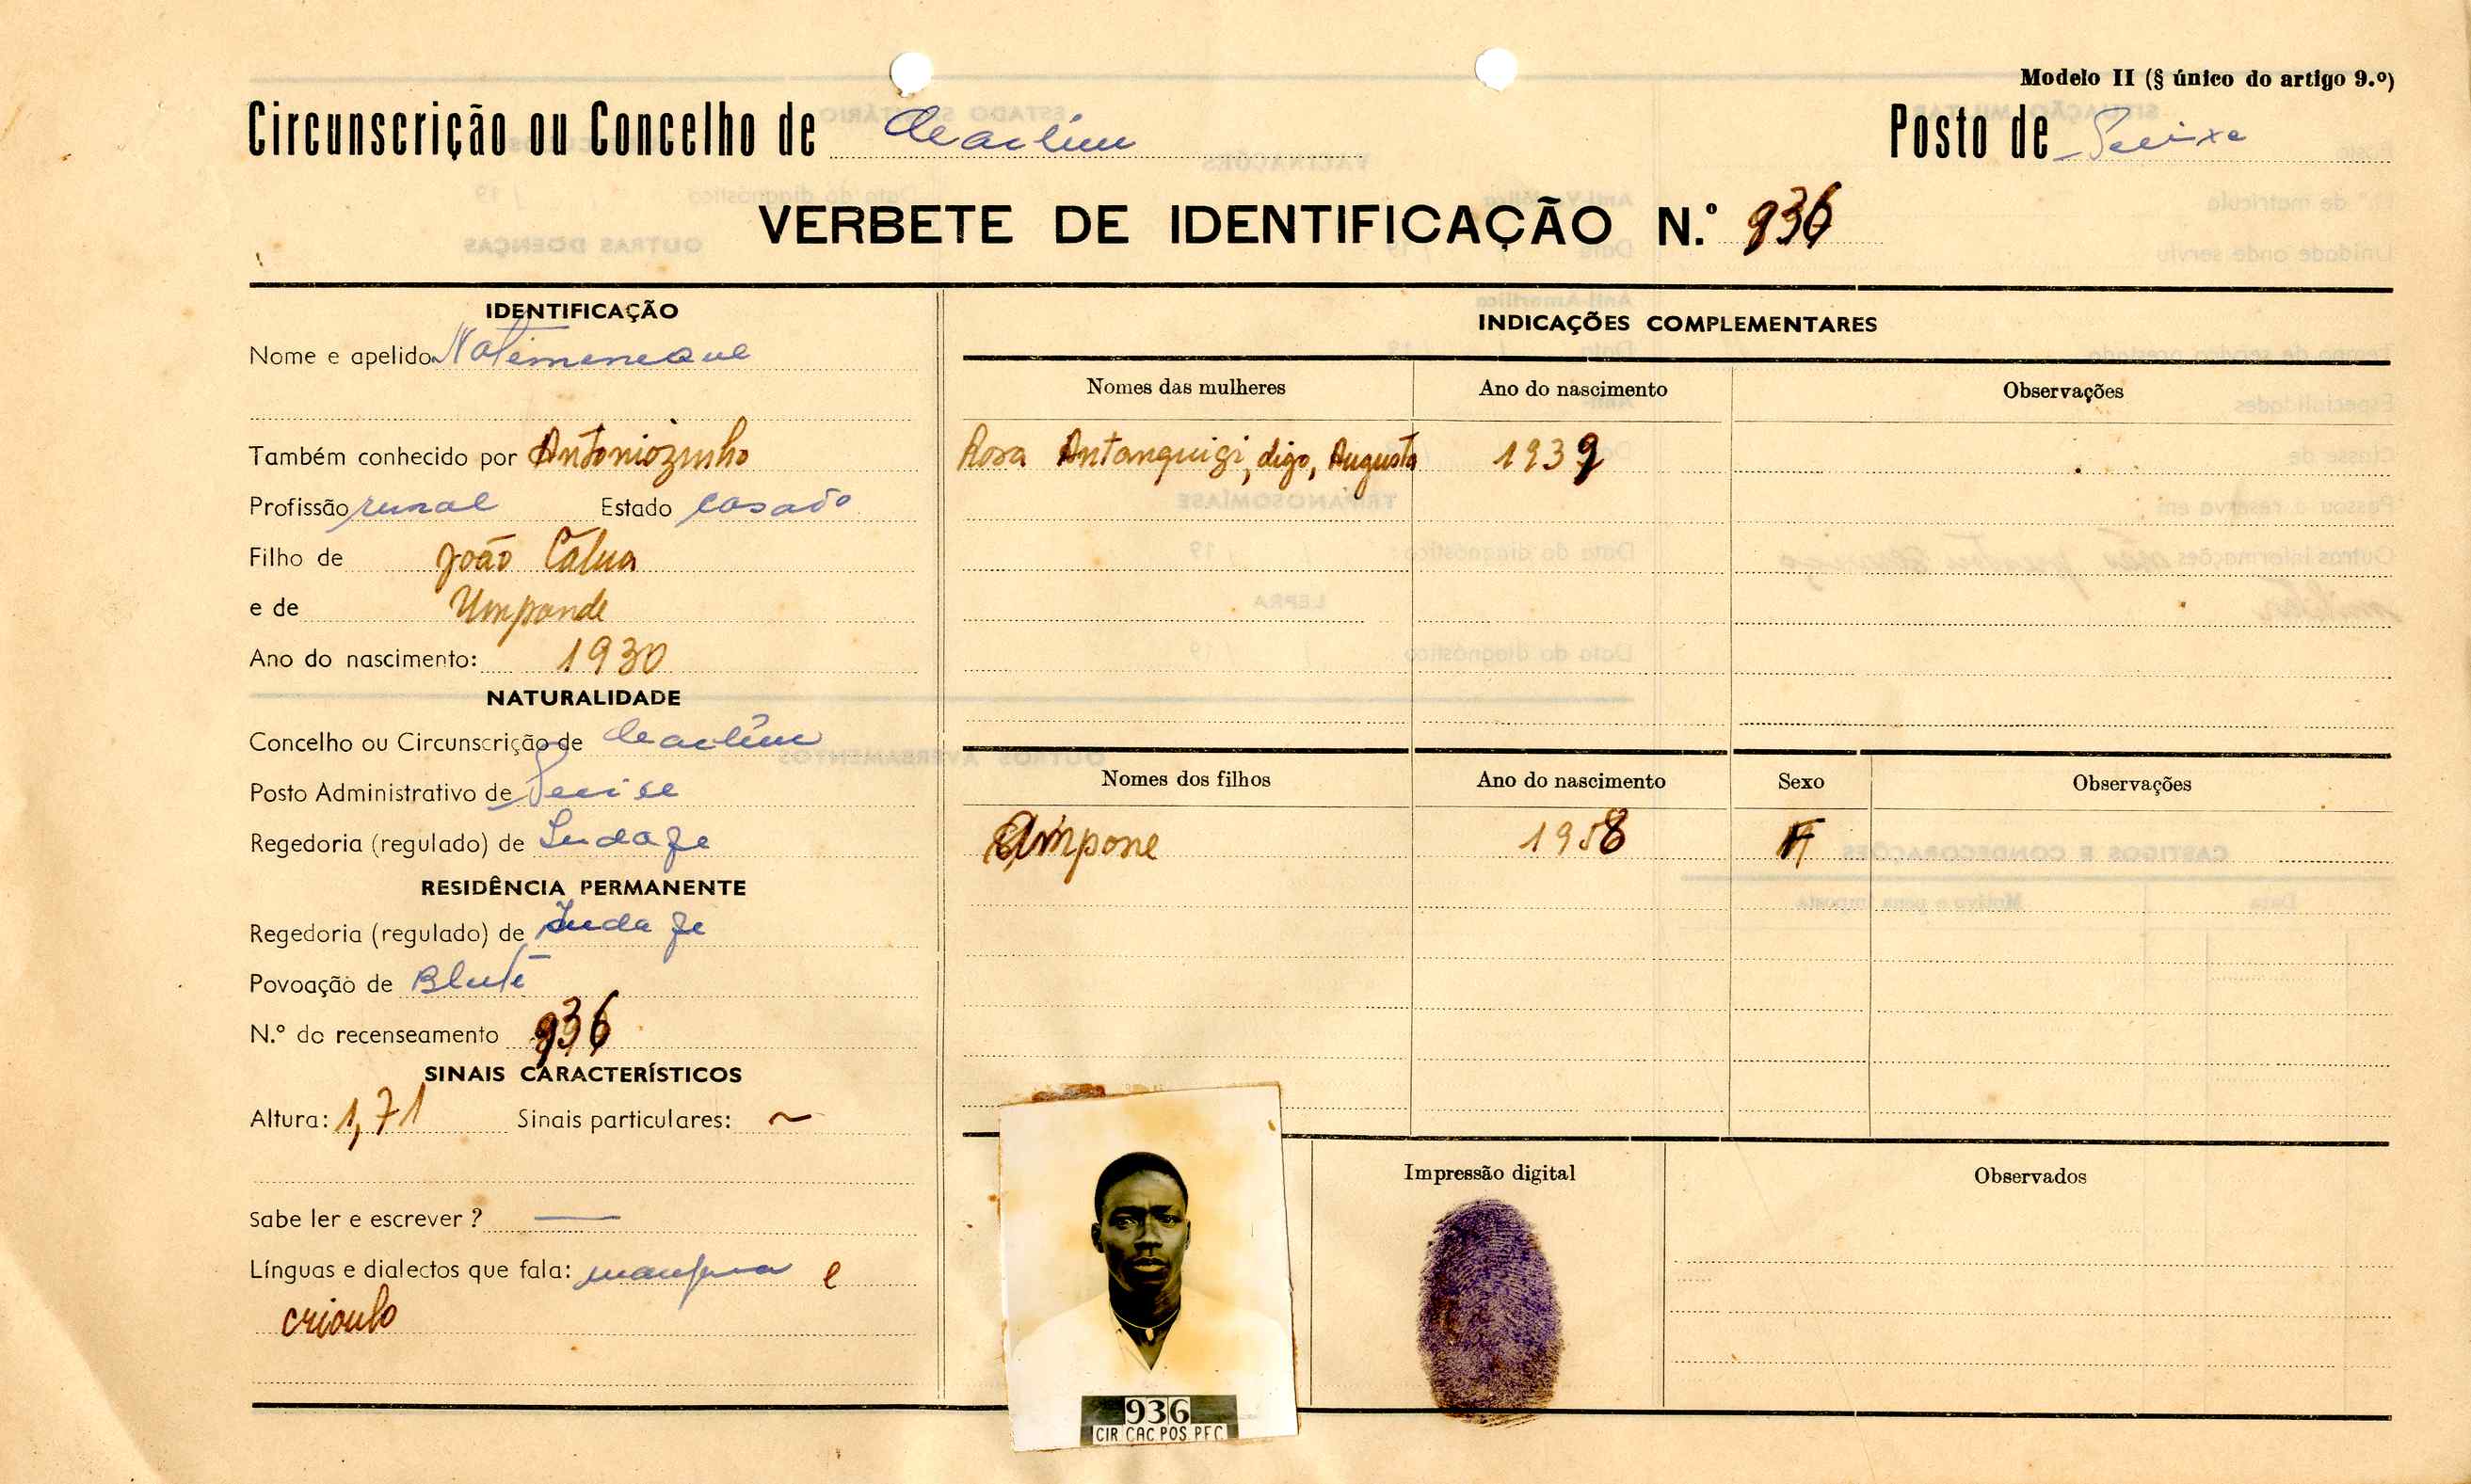 Modelo II (§ único do artigo 9.º)
Circunscrição ou Concelho de
Posto de
VERBETE DE IDENTIFICAÇÃO N.º 936
IDENTIFICAÇÃO
Nome e apelido
Também conhecido por Antoniozinho
Profissão rural Estado casado
Filho de João Cálua
e de Umpande
Ano do nascimento: 1930
NATURALIDADE
Concelho ou Circunscrição de
Posto Administrativo de
Regedoria (regulado) de
RESIDÊNCIA PERMANENTE
Regedoria (regulado) de
Povoação de
N.º do recenseamento 936
SINAIS CARACTERÍSTICOS
Altura: 1,71 Sinais particulares: ~
Sabe ler e escrever ? —
Línguas e dialectos que fala: e
crioulo
INDICAÇÕES COMPLEMENTARES
Nomes das mulheres Ano do nascimento Observações
Rosa Antanquigi, digo, Augusta 1939
Nomes dos filhos Ano do nascimento Sexo Observações
Ampone 1958 F
Impressão digital Observados
936
CIR CAC POS PFC